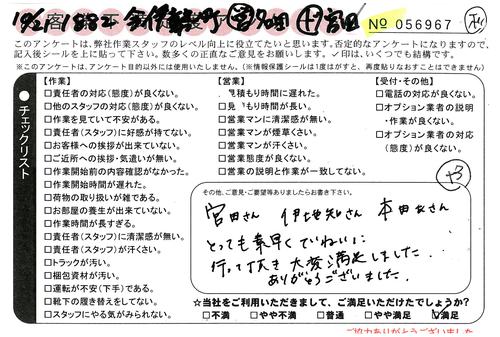 No 056967
このアンケートは、弊社作業スタッフのレベル向上に役立てたいと思います。否定的なアンケートになりますので、
記入後シールを上に貼って下さい。数多くの正直なご意見をお願いします。✓印は、いくつでも結構です。
※このアンケートは、アンケート目的以外には使用いたしません。(※情報保護シールは1度はがすと、再度貼りなおすことはできません)
●チェックリスト
【作業】
□責任者の対応(態度)が良くない。
□他のスタッフの対応(態度)が良くない。
□作業を見ていて不安がある。
□責任者(スタッフ)に好感が持てない。
□お客様への挨拶が出来ていない。
□ご近所への挨拶・気遣いが無い。
□作業開始前の内容確認がなかった。
□作業開始時間が遅れた。
□荷物の取り扱いが雑である。
□お部屋の養生が出来ていない。
□作業時間が長すぎる。
□責任者(スタッフ)に清潔感が無い。
□責任者(スタッフ)が汗くさい。
□トラックが汚い。
□梱包資材が汚い。
□運転が不安(下手)である。
□靴下の履き替えをしてない。
□スタッフにやる気がみられない。
【営業】
□見積もり時間に遅れた。
□見積もり時間が長い。
□営業マンに清潔感が無い。
□営業マンが煙草くさい。
□営業マンが汗くさい。
□営業態度が良くない。
□営業の説明と作業が一致してない。
【受付・その他】
□電話の対応が良くない。
□オプション業者の説明
・作業が良くない。
□オプション業者の対応
(態度)が良くない。
その他、ご意見・ご要望等ありましたらお書き下さい。
宮田さん 伊地知さん 本田さん
とっても素早くていねいに
行って頂き大変満足しました。
ありがとうございました。
☆当社をご利用いただきまして、ご満足いただけたでしょうか?
□不満 □やや不満 □普通 □やや満足 ☑満足
ご協力ありがとうございました